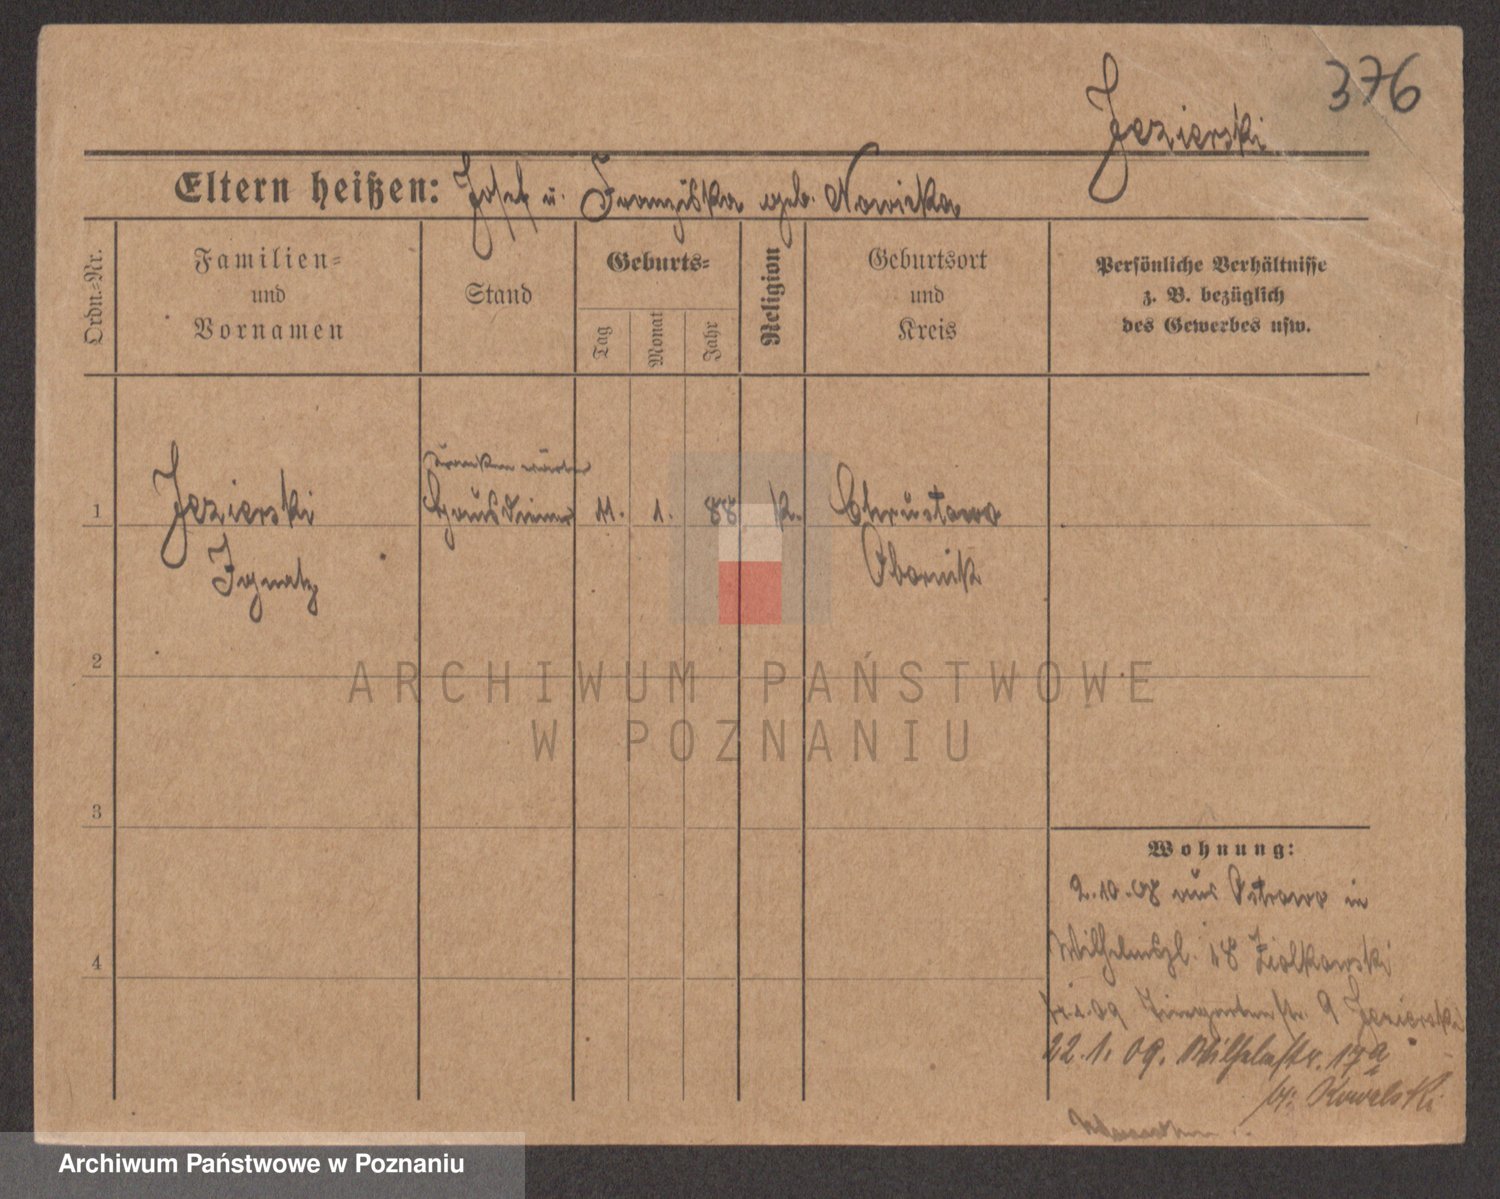 376
Jezierski
Eltern heißen: Josef u. Franziska geb. Nowicka
Ordn.=Nr.
Familien=
und
Vornamen
Stand
Geburts=
Tag
Monat
Jahr
Religion
Geburtsort
und
Kreis
Persönliche Verhältnisse
z. B. bezüglich
des Gewerbes usw.
Krankenwärter
1 Jezierski Hausdiener 11. 1. 88. K. Chrustowo
Ignatz Obornik
2
3
4
Wohnung:
2.10.08 aus Ostrowo in
Wilhelmspl. 18 Ziolkowski
09 Tiergartenstr. 9 Jezierski
22.1.09. Wilhelmstr. 17a
bei Kowalski
ARCHIWUM PAŃSTWOWE
W POZNANIU
Archiwum Państwowe w Poznaniu